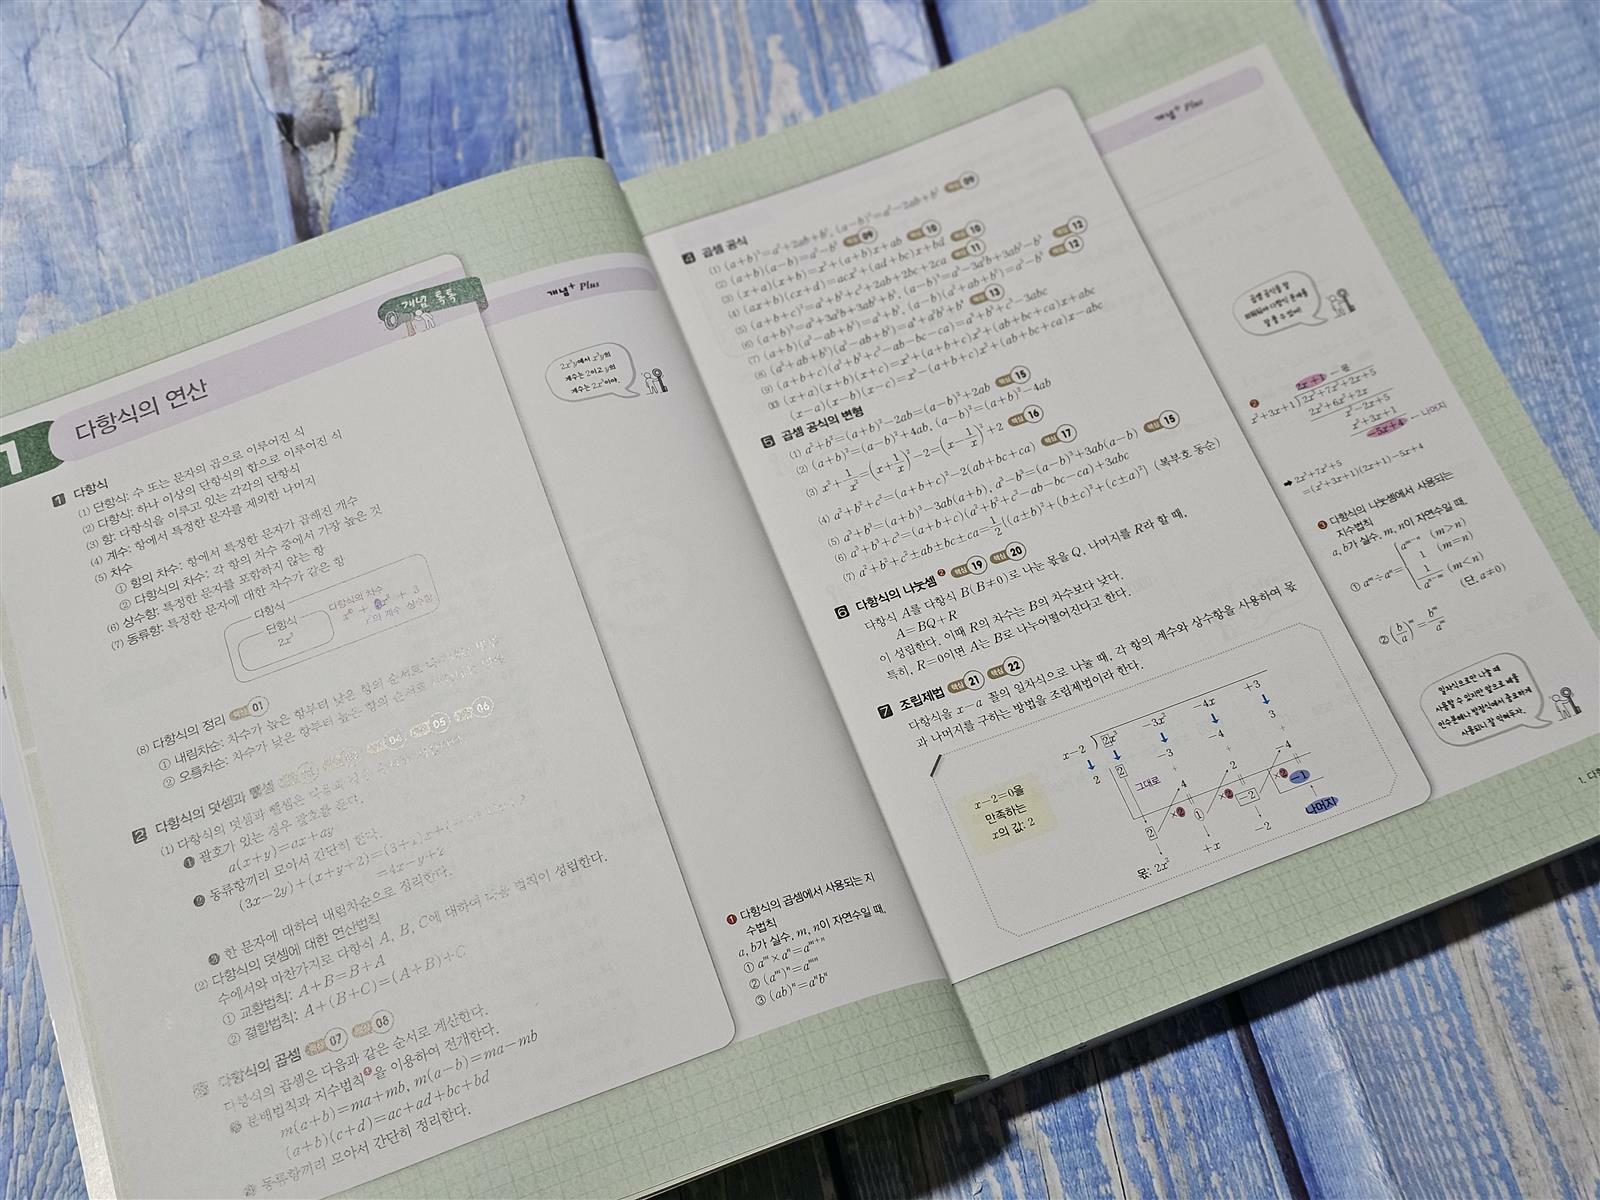 개념 톡톡
1 다항식의 연산
1 다항식
(1) 단항식: 수 또는 문자의 곱으로 이루어진 식
(2) 다항식: 하나 이상의 단항식의 합으로 이루어진 식
(3) 항: 다항식을 이루고 있는 각각의 단항식
(4) 계수: 항에서 특정한 문자를 제외한 나머지
(5) 차수
① 항의 차수: 항에서 특정한 문자가 곱해진 개수
② 다항식의 차수: 각 항의 차수 중에서 가장 높은 것
(6) 상수항: 특정한 문자를 포함하지 않는 항
(7) 동류항: 특정한 문자에 대한 차수가 같은 항
다항식
단항식
2x³
다항식의 차수
x의 계수 상수항
(8) 다항식의 정리 핵심 01
① 내림차순: 차수가 높은 항부터 낮은 항의 순서로
② 오름차순: 차수가 낮은 항부터 높은 항의 순서로
2 다항식의 덧셈과 뺄셈 04 05 06
(1) 다항식의 덧셈과 뺄셈은 다음과 같은
❶ 괄호가 있는 경우 괄호를 푼다.
a(x+y)=ax+ay
❷ 동류항끼리 모아서 간단히 한다.
(3x-2y)+(x+y+2)=(3+1)x+
=4x-y+2
❸ 한 문자에 대하여 내림차순으로 정리한다.
(2) 다항식의 덧셈에 대한 연산법칙
수에서와 마찬가지로 다항식 A, B, C에 대하여 다음 법칙이 성립한다.
① 교환법칙: A+B=B+A
② 결합법칙: A+(B+C)=(A+B)+C
다항식의 곱셈 핵심 07 핵심 08
다항식의 곱셈은 다음과 같은 순서로 계산한다.
분배법칙과 지수법칙❶을 이용하여 전개한다.
m(a+b)=ma+mb, m(a-b)=ma-mb
(a+b)(c+d)=ac+ad+bc+bd
동류항끼리 모아서 간단히 정리한다.
개념⁺ Plus
2x³y에서 x³y의
계수는 2이고 y의
계수는 2x³이야.
❶ 다항식의 곱셈에서 사용되는 지
수법칙
a, b가 실수, m, n이 자연수일 때,
① aᵐ×aⁿ=aᵐ⁺ⁿ
② (aᵐ)ⁿ=aᵐⁿ
③ (ab)ⁿ=aⁿbⁿ
4 곱셈 공식
(1) (a+b)²=a²+2ab+b², (a-b)²=a²-2ab+b² 핵심 09
(2) (a+b)(a-b)=a²-b² 핵심 09
(3) (x+a)(x+b)=x²+(a+b)x+ab 핵심 10
(4) (ax+b)(cx+d)=acx²+(ad+bc)x+bd 핵심 10
(5) (a+b+c)²=a²+b²+c²+2ab+2bc+2ca 핵심 11
(6) (a+b)³=a³+3a²b+3ab²+b³, (a-b)³=a³-3a²b+3ab²-b³ 핵심 12
(7) (a+b)(a²-ab+b²)=a³+b³, (a-b)(a²+ab+b²)=a³-b³ 핵심 12
(8) (a²+ab+b²)(a²-ab+b²)=a⁴+a²b²+b⁴ 핵심 13
(9) (a+b+c)(a²+b²+c²-ab-bc-ca)=a³+b³+c³-3abc
(10) (x+a)(x+b)(x+c)=x³+(a+b+c)x²+(ab+bc+ca)x+abc
(x-a)(x-b)(x-c)=x³-(a+b+c)x²+(ab+bc+ca)x-abc
5 곱셈 공식의 변형
(1) a²+b²=(a+b)²-2ab=(a-b)²+2ab 핵심 15
(2) (a+b)²=(a-b)²+4ab, (a-b)²=(a+b)²-4ab
(3) x²+1/x²=(x+1/x)²-2=(x-1/x)²+2 핵심 16
(4) a²+b²+c²=(a+b+c)²-2(ab+bc+ca) 핵심 17
(5) a³+b³=(a+b)³-3ab(a+b), a³-b³=(a-b)³+3ab(a-b) 핵심 15
(6) a³+b³+c³=(a+b+c)(a²+b²+c²-ab-bc-ca)+3abc
(7) a²+b²+c²±ab±bc±ca=1/2{(a±b)²+(b±c)²+(c±a)²} (복부호 동순)
6 다항식의 나눗셈❷ 핵심 19 핵심 20
다항식 A를 다항식 B(B≠0)로 나눈 몫을 Q, 나머지를 R라 할 때,
A=BQ+R
이 성립한다. 이때 R의 차수는 B의 차수보다 낮다.
특히, R=0이면 A는 B로 나누어떨어진다고 한다.
7 조립제법 핵심 21 핵심 22
다항식을 x-a 꼴의 일차식으로 나눌 때, 각 항의 계수와 상수항을 사용하여 몫
과 나머지를 구하는 방법을 조립제법이라 한다.
x-2 ) 2x³ -3x² -4x +3
2 2 -3 -4 3
그대로 4 2 -4
×2 ×2 ×2
2 1 -2 -1
나머지
몫: 2x² +x -2
x-2=0을
만족하는
x의 값: 2
개념⁺ Plus
곱셈 공식을 잘
❷ 2x+1 ─ 몫
x²+3x+1)2x³+7x²+2x+5
2x³+6x²+2x
x²-2x+5
x²+3x+1
-5x+4 ─ 나머지
➡ 2x³+7x²+5
=(x²+3x+1)(2x+1)-5x+4
❸ 다항식의 나눗셈에서 사용되는
지수법칙
a, b가 실수, m, n이 자연수일 때,
① aᵐ÷aⁿ= { aᵐ⁻ⁿ (m>n)
1 (m=n)
1/aⁿ⁻ᵐ (m<n)
(단, a≠0)
② (b/a)ᵐ=bᵐ/aᵐ
일차식으로만 나눌 때
사용할 수 있지만 앞으로 배울
인수분해나 방정식에서 중요하게
사용되니 잘 익혀두자.
1. 다항